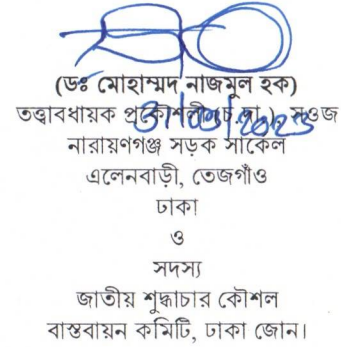 (ডঃ মোহাম্মদ নাজমুল হক)
তত্ত্বাবধায়ক প্রকৌশলী(চ.দা.), সওজ
নারায়ণগঞ্জ সড়ক সার্কেল
এলেনবাড়ী, তেজগাঁও
ঢাকা
ও
সদস্য
জাতীয় শুদ্ধাচার কৌশল
বাস্তবায়ন কমিটি, ঢাকা জোন।